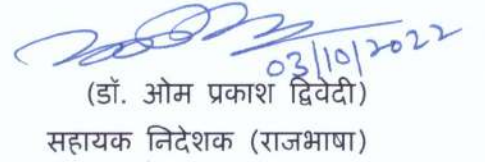 03/10/2022
(डॉ. ओम प्रकाश द्विवेदी)
सहायक निदेशक (राजभाषा)